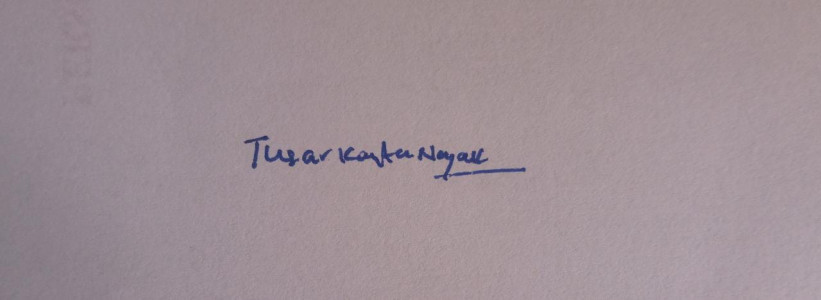 Tusar Kanta Nayak